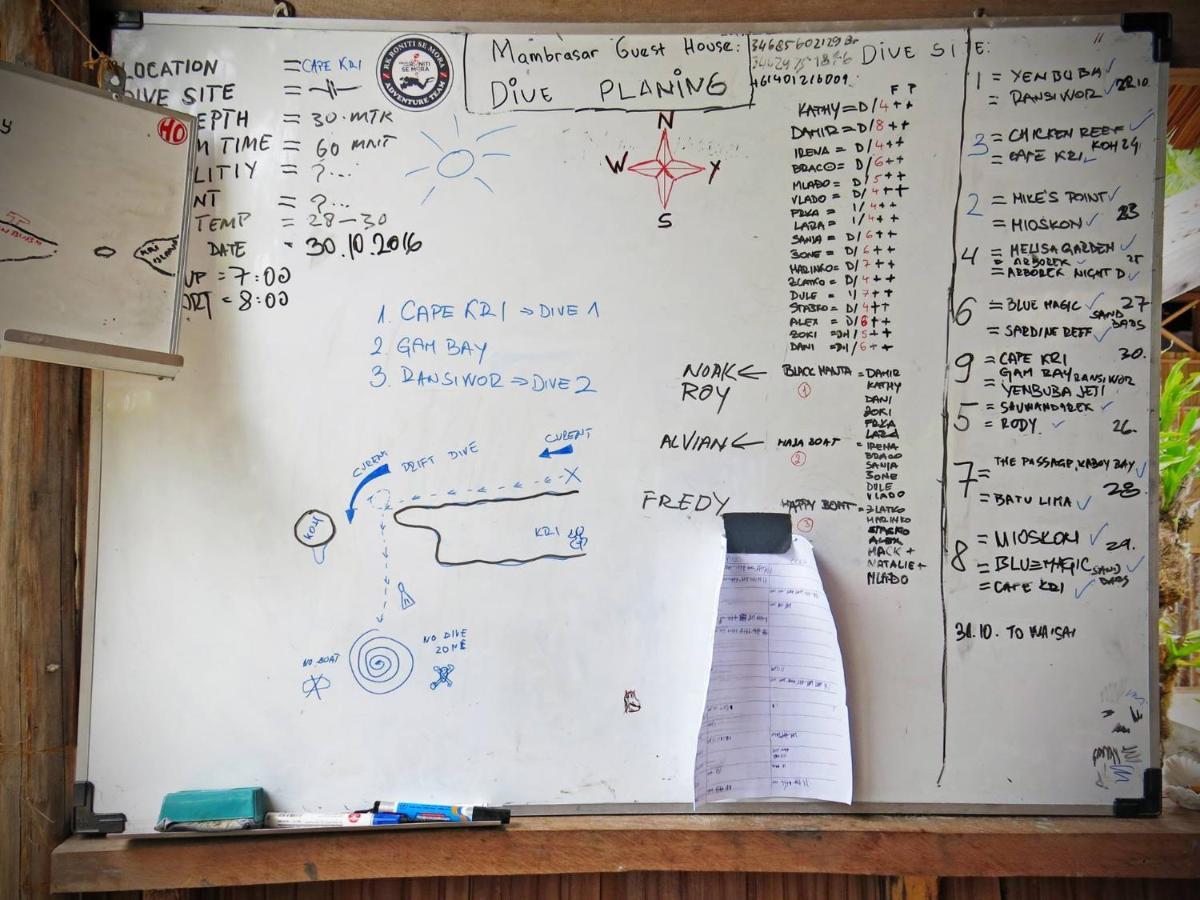 LOCATION = CAPE KRI
DIVE SITE =
EPTH = 30. MTR
M TIME = 60 MNT
LITIY = ?...
NT = ?...
TEMP = 28-30
DATE = 30.10.2016
UP = 7:00
ORT = 8:00
HO
RK RONITI SE MORA
RONITI SE MORA
ADVENTURE TEAM
Mambrasar Guest House:
DIVE PLANING
461401216009
N
W Y
S
1. CAPE KRI ⇒ DIVE 1
2 GAM BAY
3. RANSIWOR ⇒ DIVE 2
CURENT
DRIFT DIVE
CURENT
X
KOH
KRI
NO BOAT
NO DIVE
ZONE
F P
KATHY = D/4++
DAMIR = D/8++
IRENA = D/4++
BRACO = D/6++
MLADO = D/5++
VLADO = D/4++
PRKA = 1/4++
LARA = 1/4++
SANIA = D/6++
ZONE = D/6++
MARINKO = D/7++
ZLATKO = D/4++
DULE = 1/7++
STAŠKO = D/4++
ALEX = D/6++
ZOKI = DH/5++
DANI = DH/6++
NOAK ← BLACK MANTA = DAMIR
ROY
1
KATHY
DANI
ZOKI
PRKA
LARA
ALVIAN ← MAJA BOAT = IRENA
2
BRACO
SANIA
ZONE
DULE
VLADO
FREDY HAPPY BOAT = ZLATKO
3
MARINKO
STAŠKO
ALEX
MACK +
NATALIE +
MLADO
DIVE SITE:
1 = YENBUBA ✓
= RANSIWOR ✓ 22.10
3 = CHICKEN REEF ✓
= CAPE KRI ✓ KOH 24.
2 = MIKE'S POINT ✓
= MIOSKON ✓ 23
4 = MELISA GARDEN ✓
= ARBOREK ✓ 25
= ARBOREK NIGHT D ✓
6 = BLUE MAGIC ✓ 27
SAND BARS
= SARDINE REEF ✓
9 = CAPE KRI 30.
GAM BAY RANSIWOR
= YENBUBA JETI
5 = SAUWANDAREK ✓
= RODY ✓ 26.
7 = THE PASSAGE, KABUY BAY ✓
28
= BATU LIMA ✓
8 = MIOSKON ✓ 29.
= BLUE MAGIC SAND BARS ✓
= CAPE KRI ✓
31.10. TO WAISAI